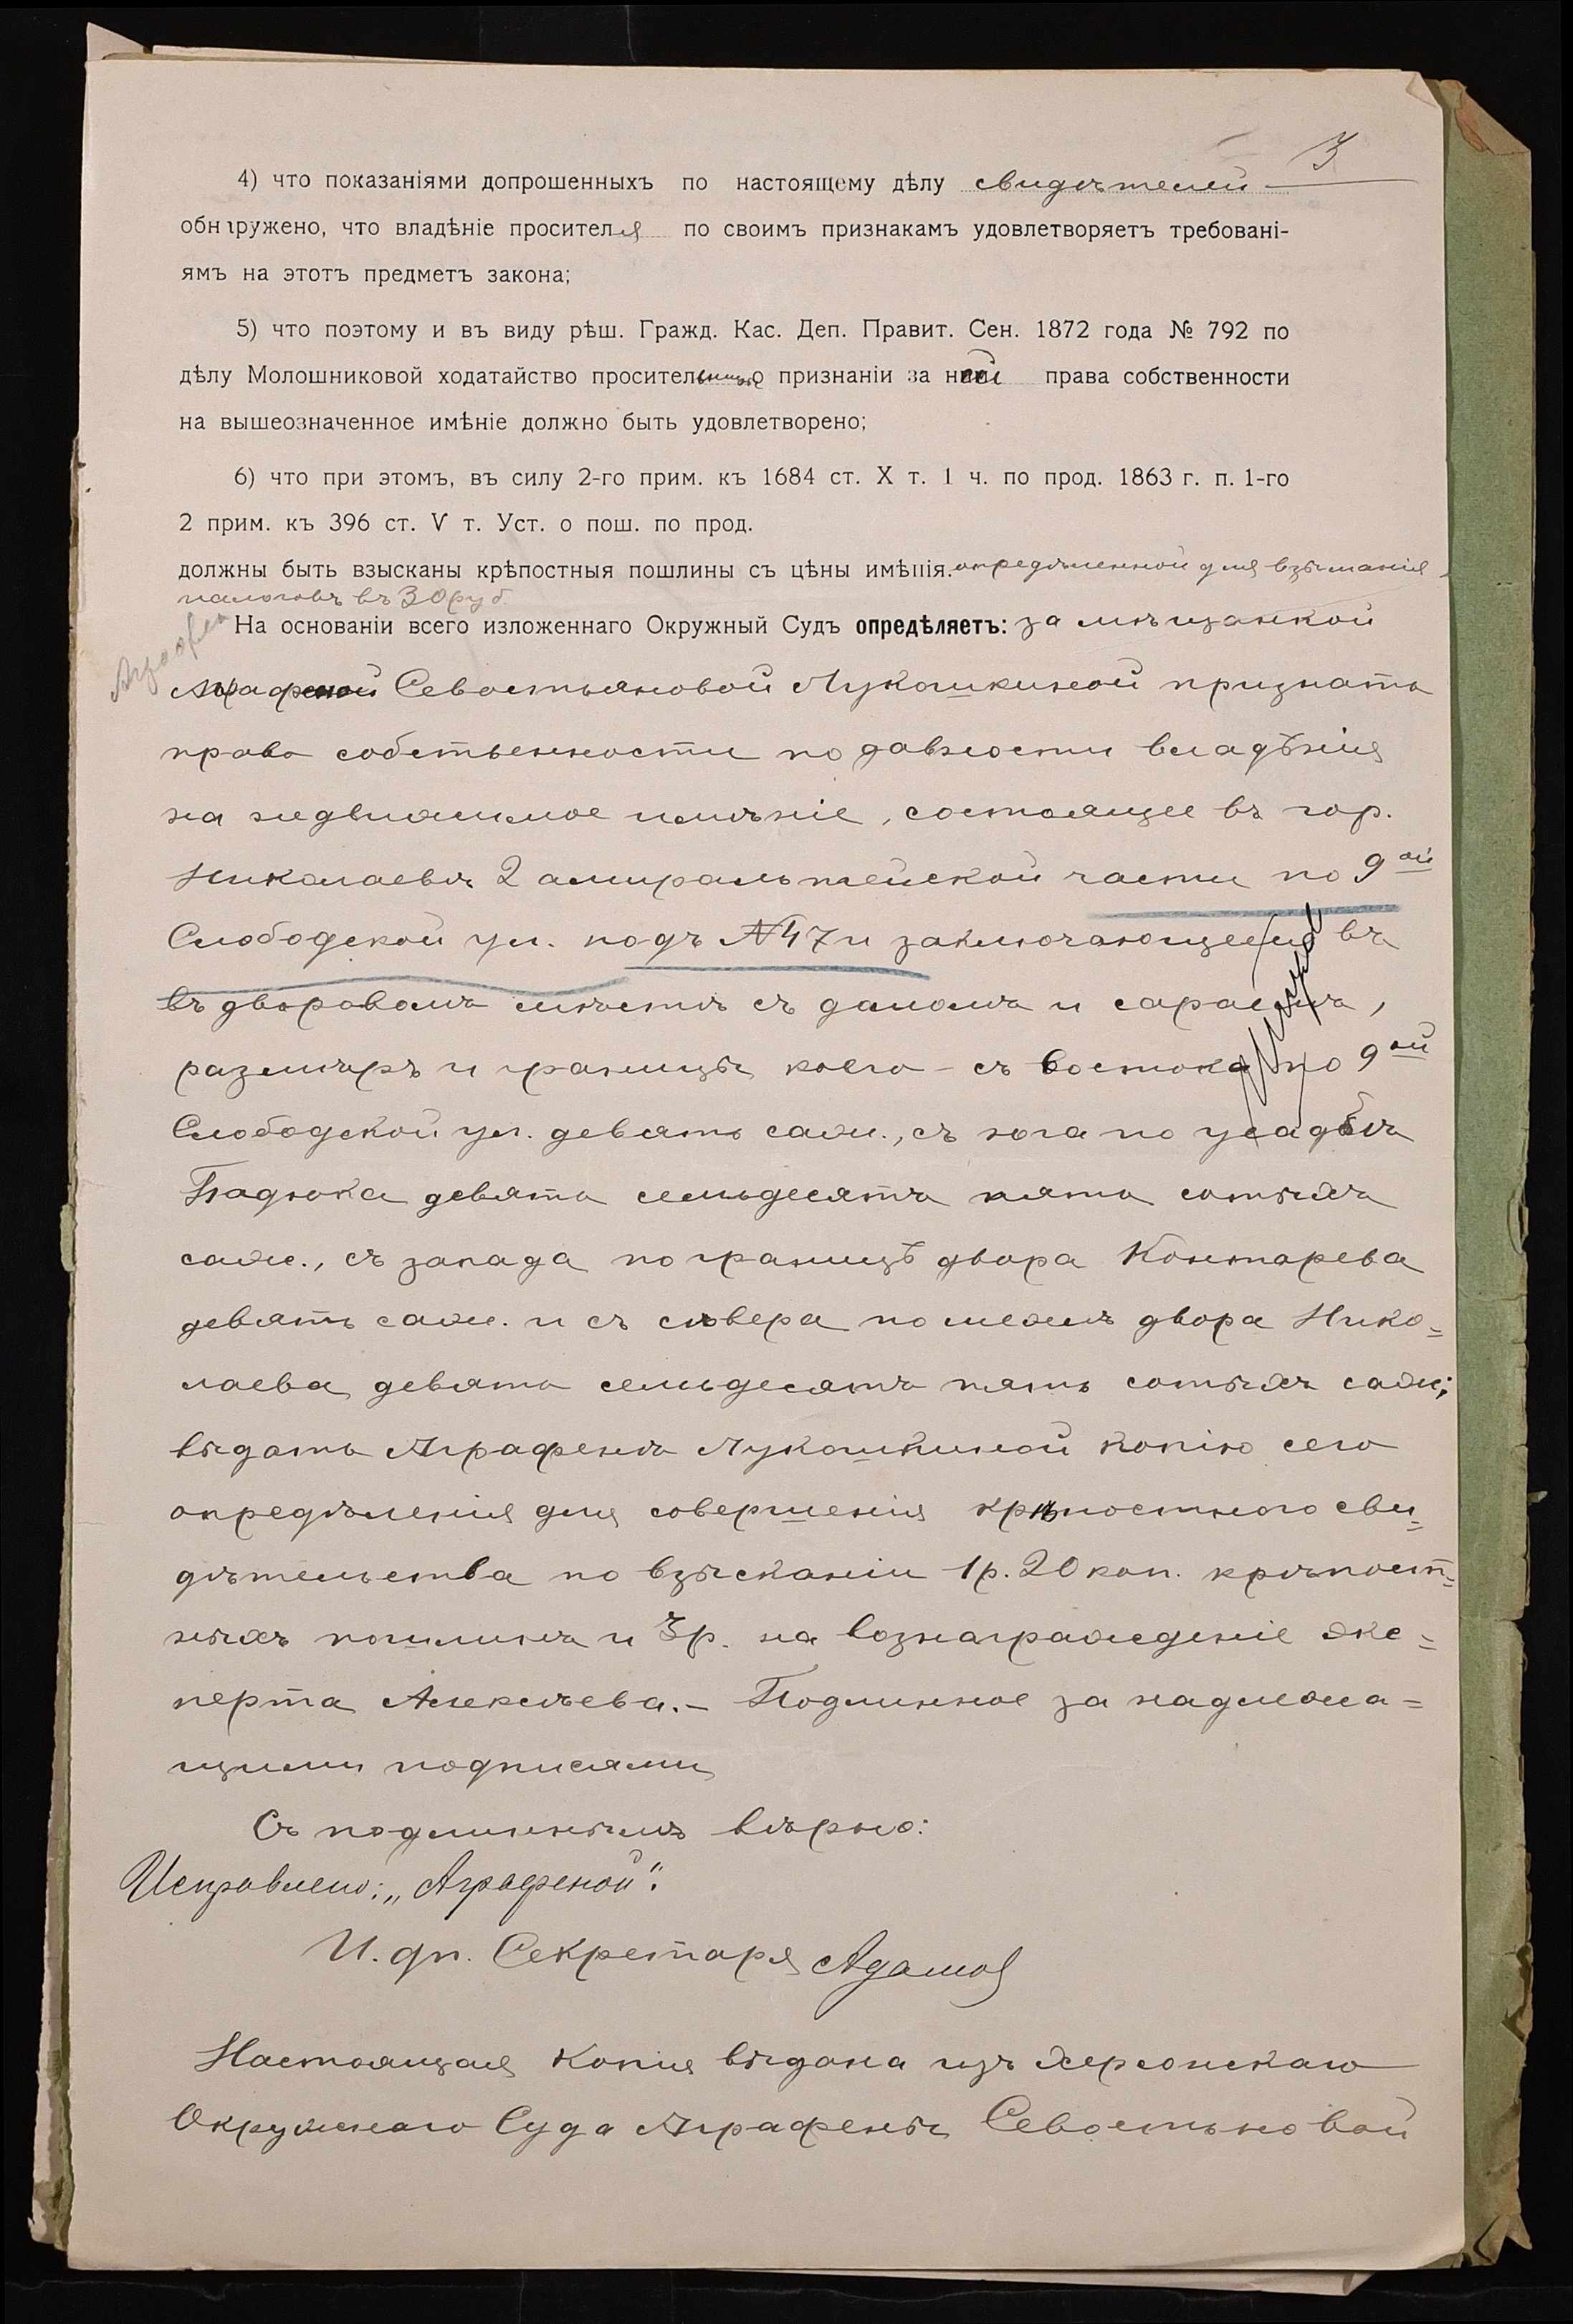 3
4) что показаніями допрошенныхъ по настоящему дѣлу свидѣтелей
обнаружено, что владѣніе просителя по своимъ признакамъ удовлетворяетъ требовані-
ямъ на этотъ предметъ закона;
5) что поэтому и въ виду рѣш. Гражд. Кас. Деп. Правит. Сен. 1872 года № 792 по
дѣлу Молошниковой ходатайство просительницы о признаніи за ней права собственности
на вышеозначенное имѣніе должно быть удовлетворено;
6) что при этомъ, въ силу 2-го прим. къ 1684 ст. X т. 1 ч. по прод. 1863 г. п. 1-го
2 прим. къ 396 ст. V т. Уст. о пош. по прод.
должны быть взысканы крѣпостныя пошлины съ цѣны имѣнія. опредѣленной для взыманія
налоговъ въ 30 руб.
На основаніи всего изложеннаго Окружный Судъ опредѣляетъ: за мѣщанкой
Аграфеной Севостьяновой Лукашкиной признать
право собственности по давности владѣнія
на недвижимое имѣніе, состоящее въ гор.
Николаевѣ 2 адмиральтейской части по 9ой
Слободской ул. подъ №47 и заключающееся въ
въ дворовомъ мѣстѣ съ домомъ и сараемъ,
размѣръ и границы коего – съ востока по 9ой
Слободской ул. девять саж., съ юга по усадьбѣ
Падюка девять семьдесятъ пять сотыхъ
саж., съ запада по границѣ двора Контарева
девять саж. и съ сѣвера по межѣ двора Нико=
лаева девять семьдесятъ пять сотыхъ саж;
выдать Аграфенѣ Лукашкиной копію сего
опредѣленія для совершенія крѣпостного сви=
дѣтельства по взысканіи 1р. 20 коп. крѣпост=
ныхъ пошлинъ и 3р. на вознагражденіе экс=
перта Алексѣева. – Подлинное за надлежа=
щими подписями
Съ подлиннымъ вѣрно:
Исправлено: „Аграфеной“.
И. дп. Секретаря Адамов
Настоящая копія выдана изъ Херсонскаго
Окружнаго Суда Аграфенѣ Севостьяновой